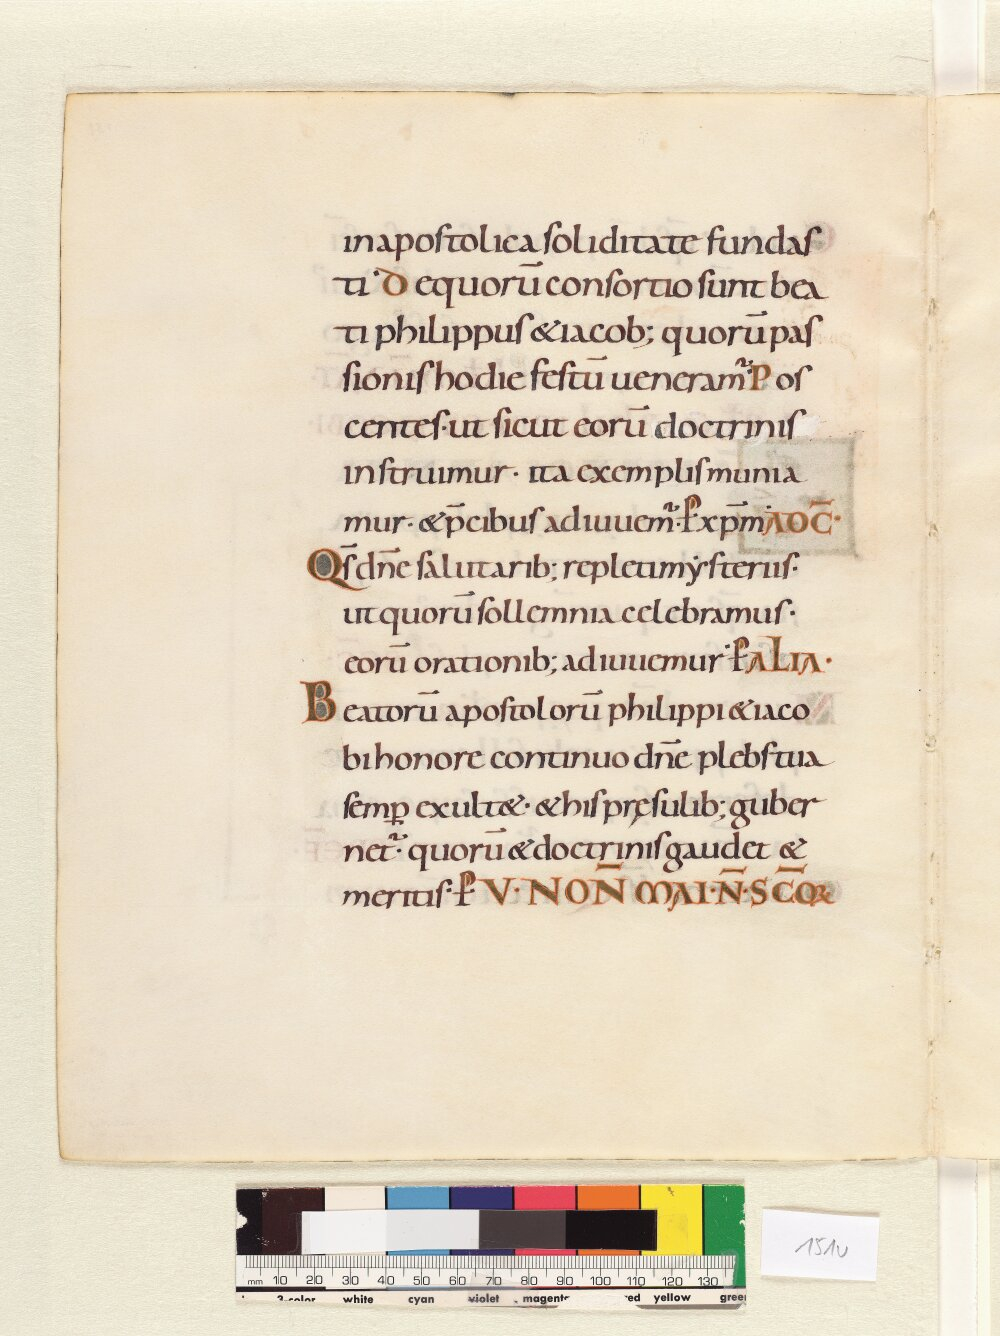 in apostolica soliditate fundas
ti· D e quorū consortio sunt bea
ti philippus & iacob; quorū pas
sionis hodie festū ueneram᷑· P os
centes· ut sicut eorū doctrinis
instruimur· ita exemplis munia
mur· & p̄cibus adiuuem᷑· P xp̄m· AD C̄·
Qs̄ dn̄e salutarib; repleti mẏsteriis·
ut quorū sollemnia celebramus·
eorū orationib; adiuuemur· P ALIA·
Beatorū apostolorū philippi & iaco
bi honore continuo dn̄e plebs tua
semꝑ exult&· & his pręsulib; guber
net᷑· quorū & doctrinis gaudet &
meritis· P V· NOÑ MAI· N̄· SC̄OꝜ
mm 10 20 30 40 50 60 70 80 90 100 110 120 130
3-color white cyan violet magenta red yellow green
151v